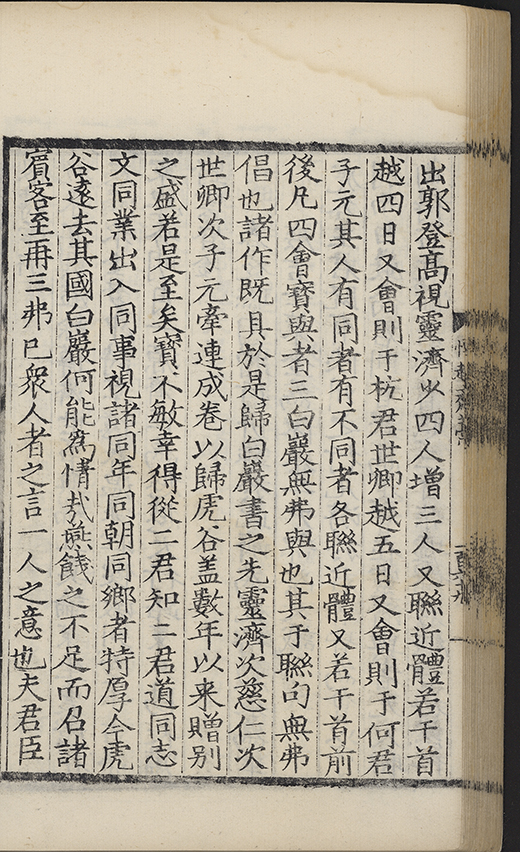 出郭登高視靈濟少四人增三人又聯近體若干首
越四日又會則于杭君世卿越五日又會則于何君
子元其人有同者有不同者各聯近體又若干首前
後凡四會寳與者三白巖無弗與也其于聯句無弗
倡也諸作既具於是歸白巖書之先靈濟次慈仁次
世卿次子元牽連成卷以歸虎谷盖數年以来贈别
之盛若是至矣寳不敏幸得從二君知二君道同志
文同業出入同事視諸同年同朝同鄉者特厚今虎
谷遠去其國白巖何能爲情㢤燕餞之不足而召諸
賓客至再三弗已衆人者之言一人之意也夫君臣